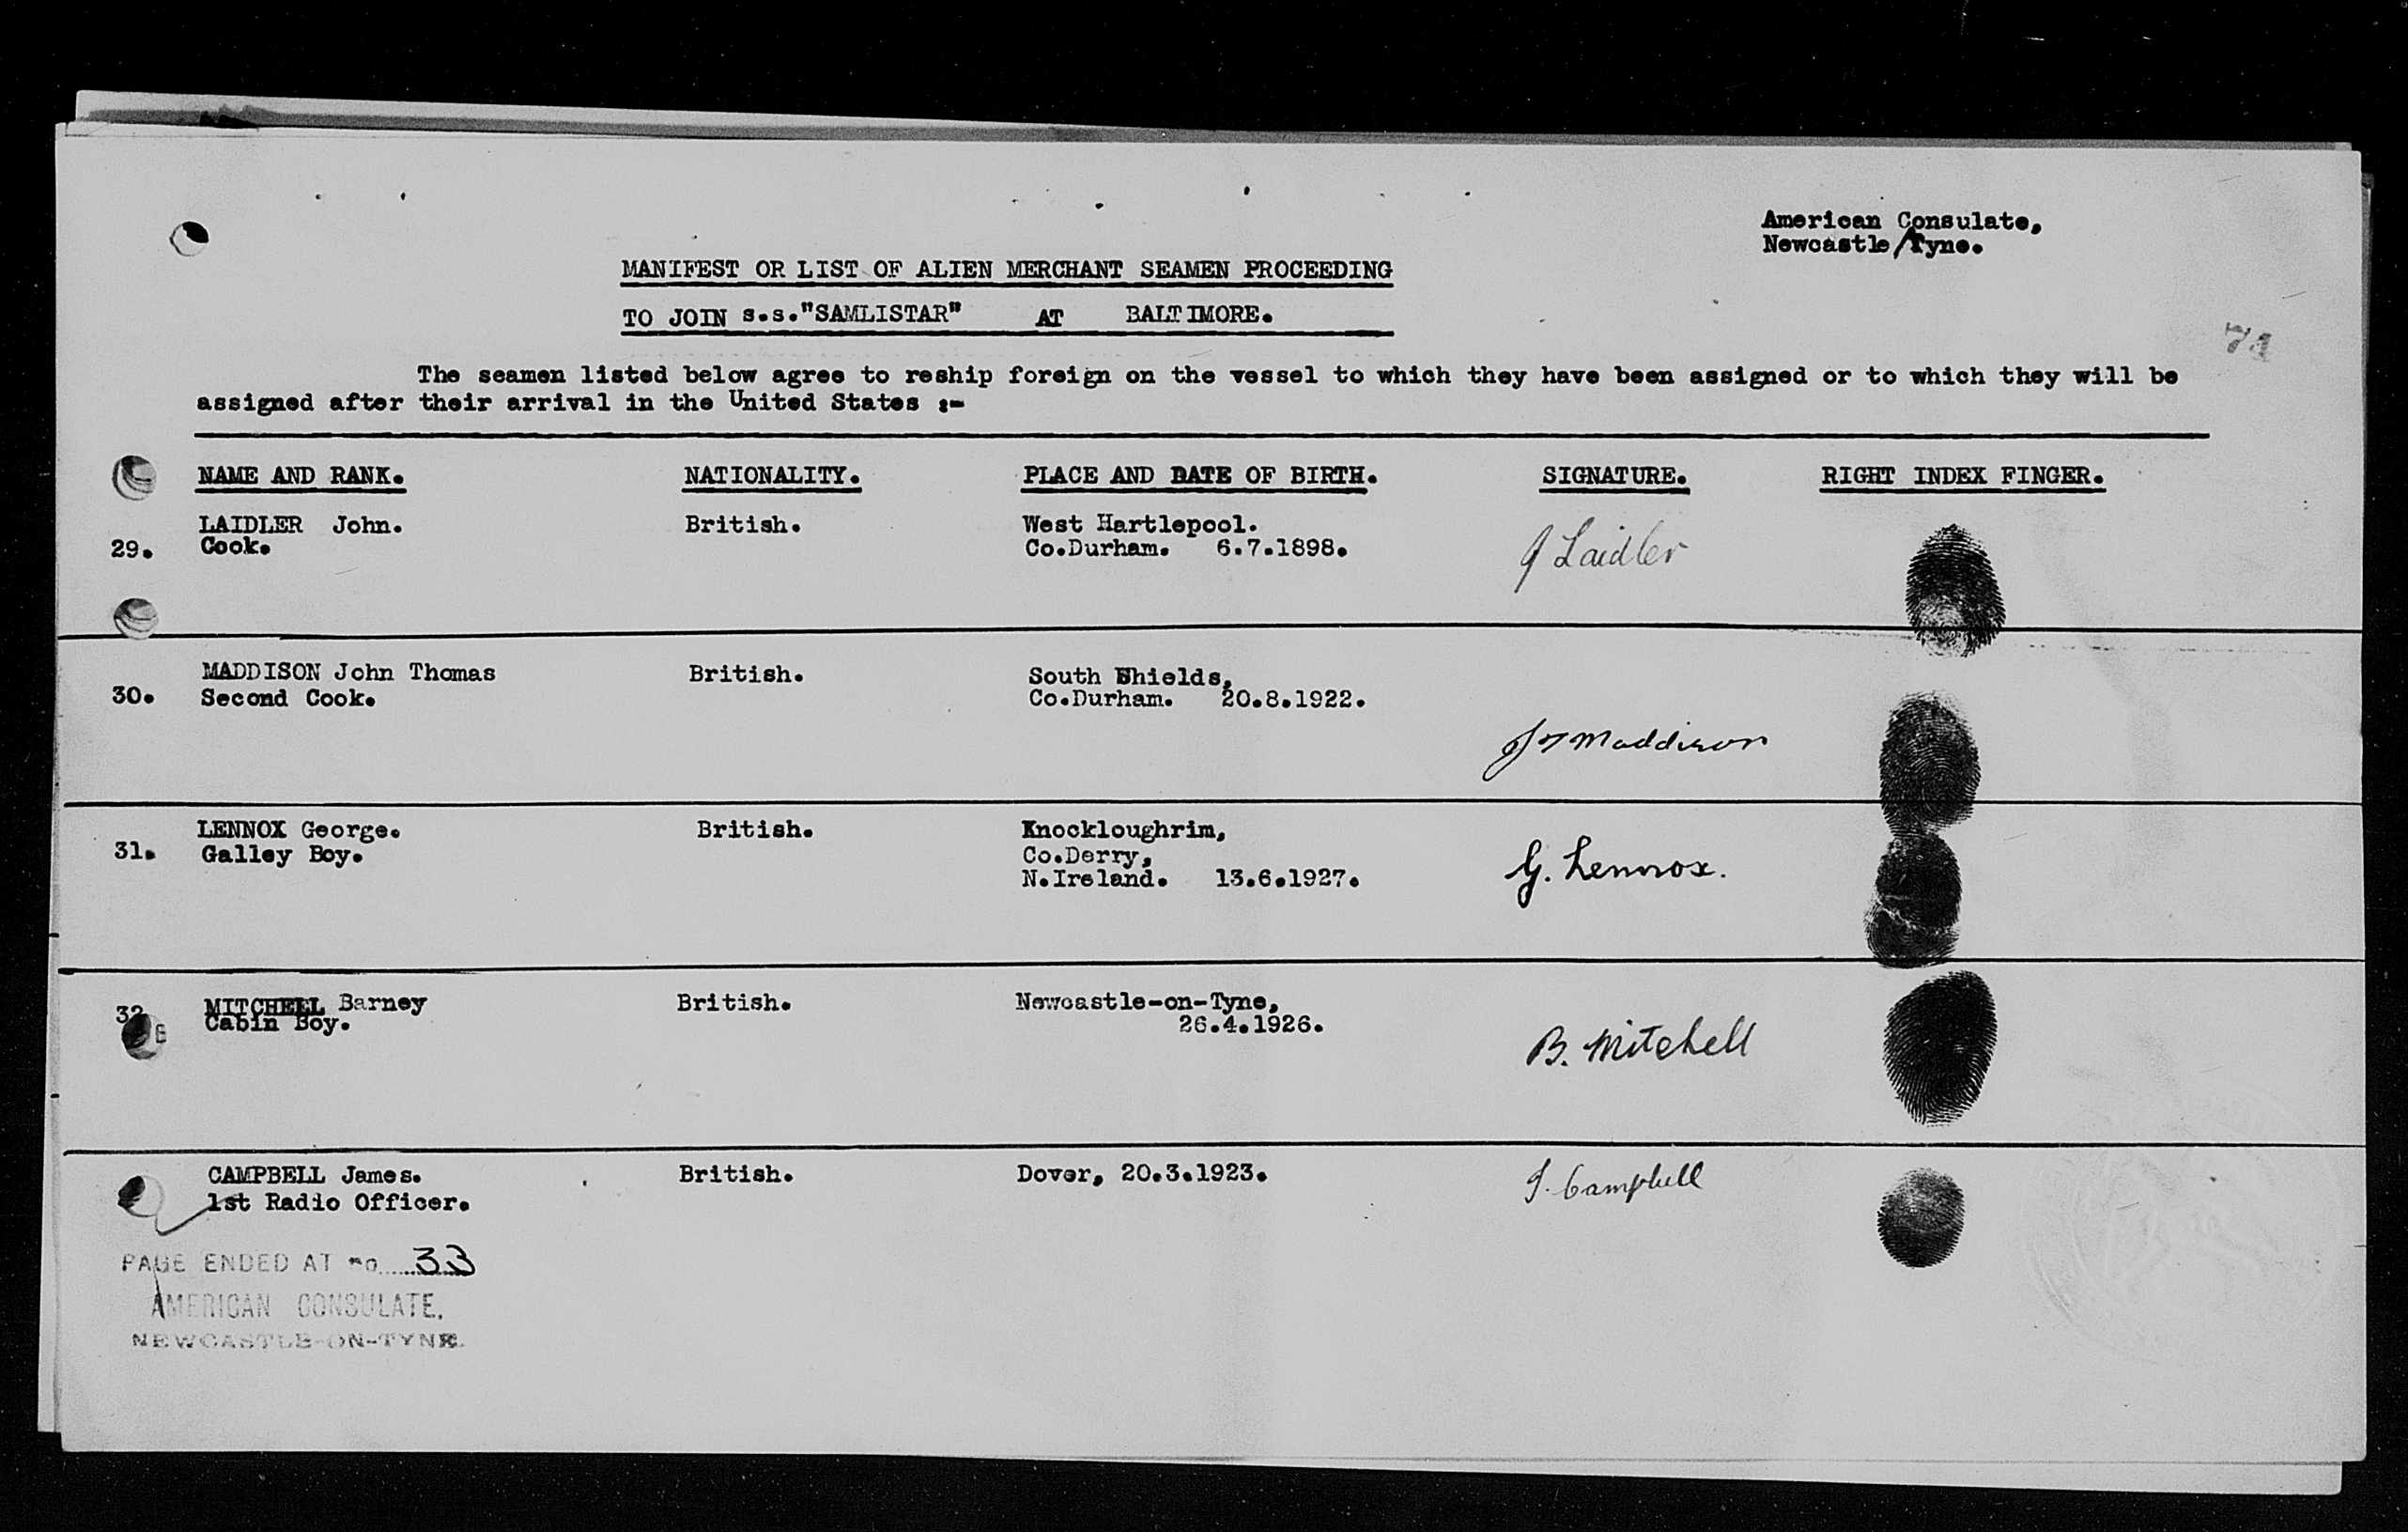 American Consulate,
Newcastle/Tyne.
MANIFEST OR LIST OF ALIEN MERCHANT SEAMEN PROCEEDING
TO JOIN s.s."SAMLISTAR" AT BALTIMORE.
74
The seamen listed below agree to reship foreign on the vessel to which they have been assigned or to which they will be
assigned after their arrival in the United States :-
NAME AND RANK. NATIONALITY. PLACE AND DATE OF BIRTH. SIGNATURE. RIGHT INDEX FINGER.
LAIDLER John. British. West Hartlepool.
29. Cook. Co.Durham. 6.7.1898. J Laidler
MADDISON John Thomas British. South Shields,
30. Second Cook. Co.Durham. 20.8.1922.
J T Maddison
LENNOX George. British. Knockloughrim,
31. Galley Boy. Co.Derry, G. Lennox.
N.Ireland. 13.6.1927.
32 MITCHELL Barney British. Newcastle-on-Tyne,
Cabin Boy. 26.4.1926.
B. Mitchell
CAMPBELL James. British. Dover, 20.3.1923. J. Campbell
1st Radio Officer.
PAGE ENDED AT no 33
AMERICAN CONSULATE,
NEWCASTLE-ON-TYNE.